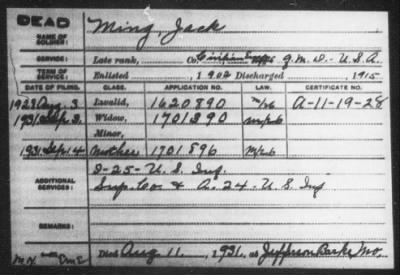 DEAD
NAME OF SOLDIER: Ming, Jack
SERVICE: Late rank, Co. Civilian Q.M.D.-U.S.A.
TERM OF SERVICE: Enlisted , 1902 Discharged , 1915
DATE OF FILING. CLASS. APPLICATION NO. LAW. CERTIFICATE NO.
1928 Aug. 3 Invalid, 1620890 A-11-19-28
1931 Sep. 3. Widow, 1701390
Minor,
1931 Sep. 14 Mother 1701896
ADDITIONAL SERVICES: D-25-U.S. Inf.
Sup. Co. & A. 24. U.S. Inf
REMARKS:
Died Aug. 11, 1931, at Jefferson Barks Mo.